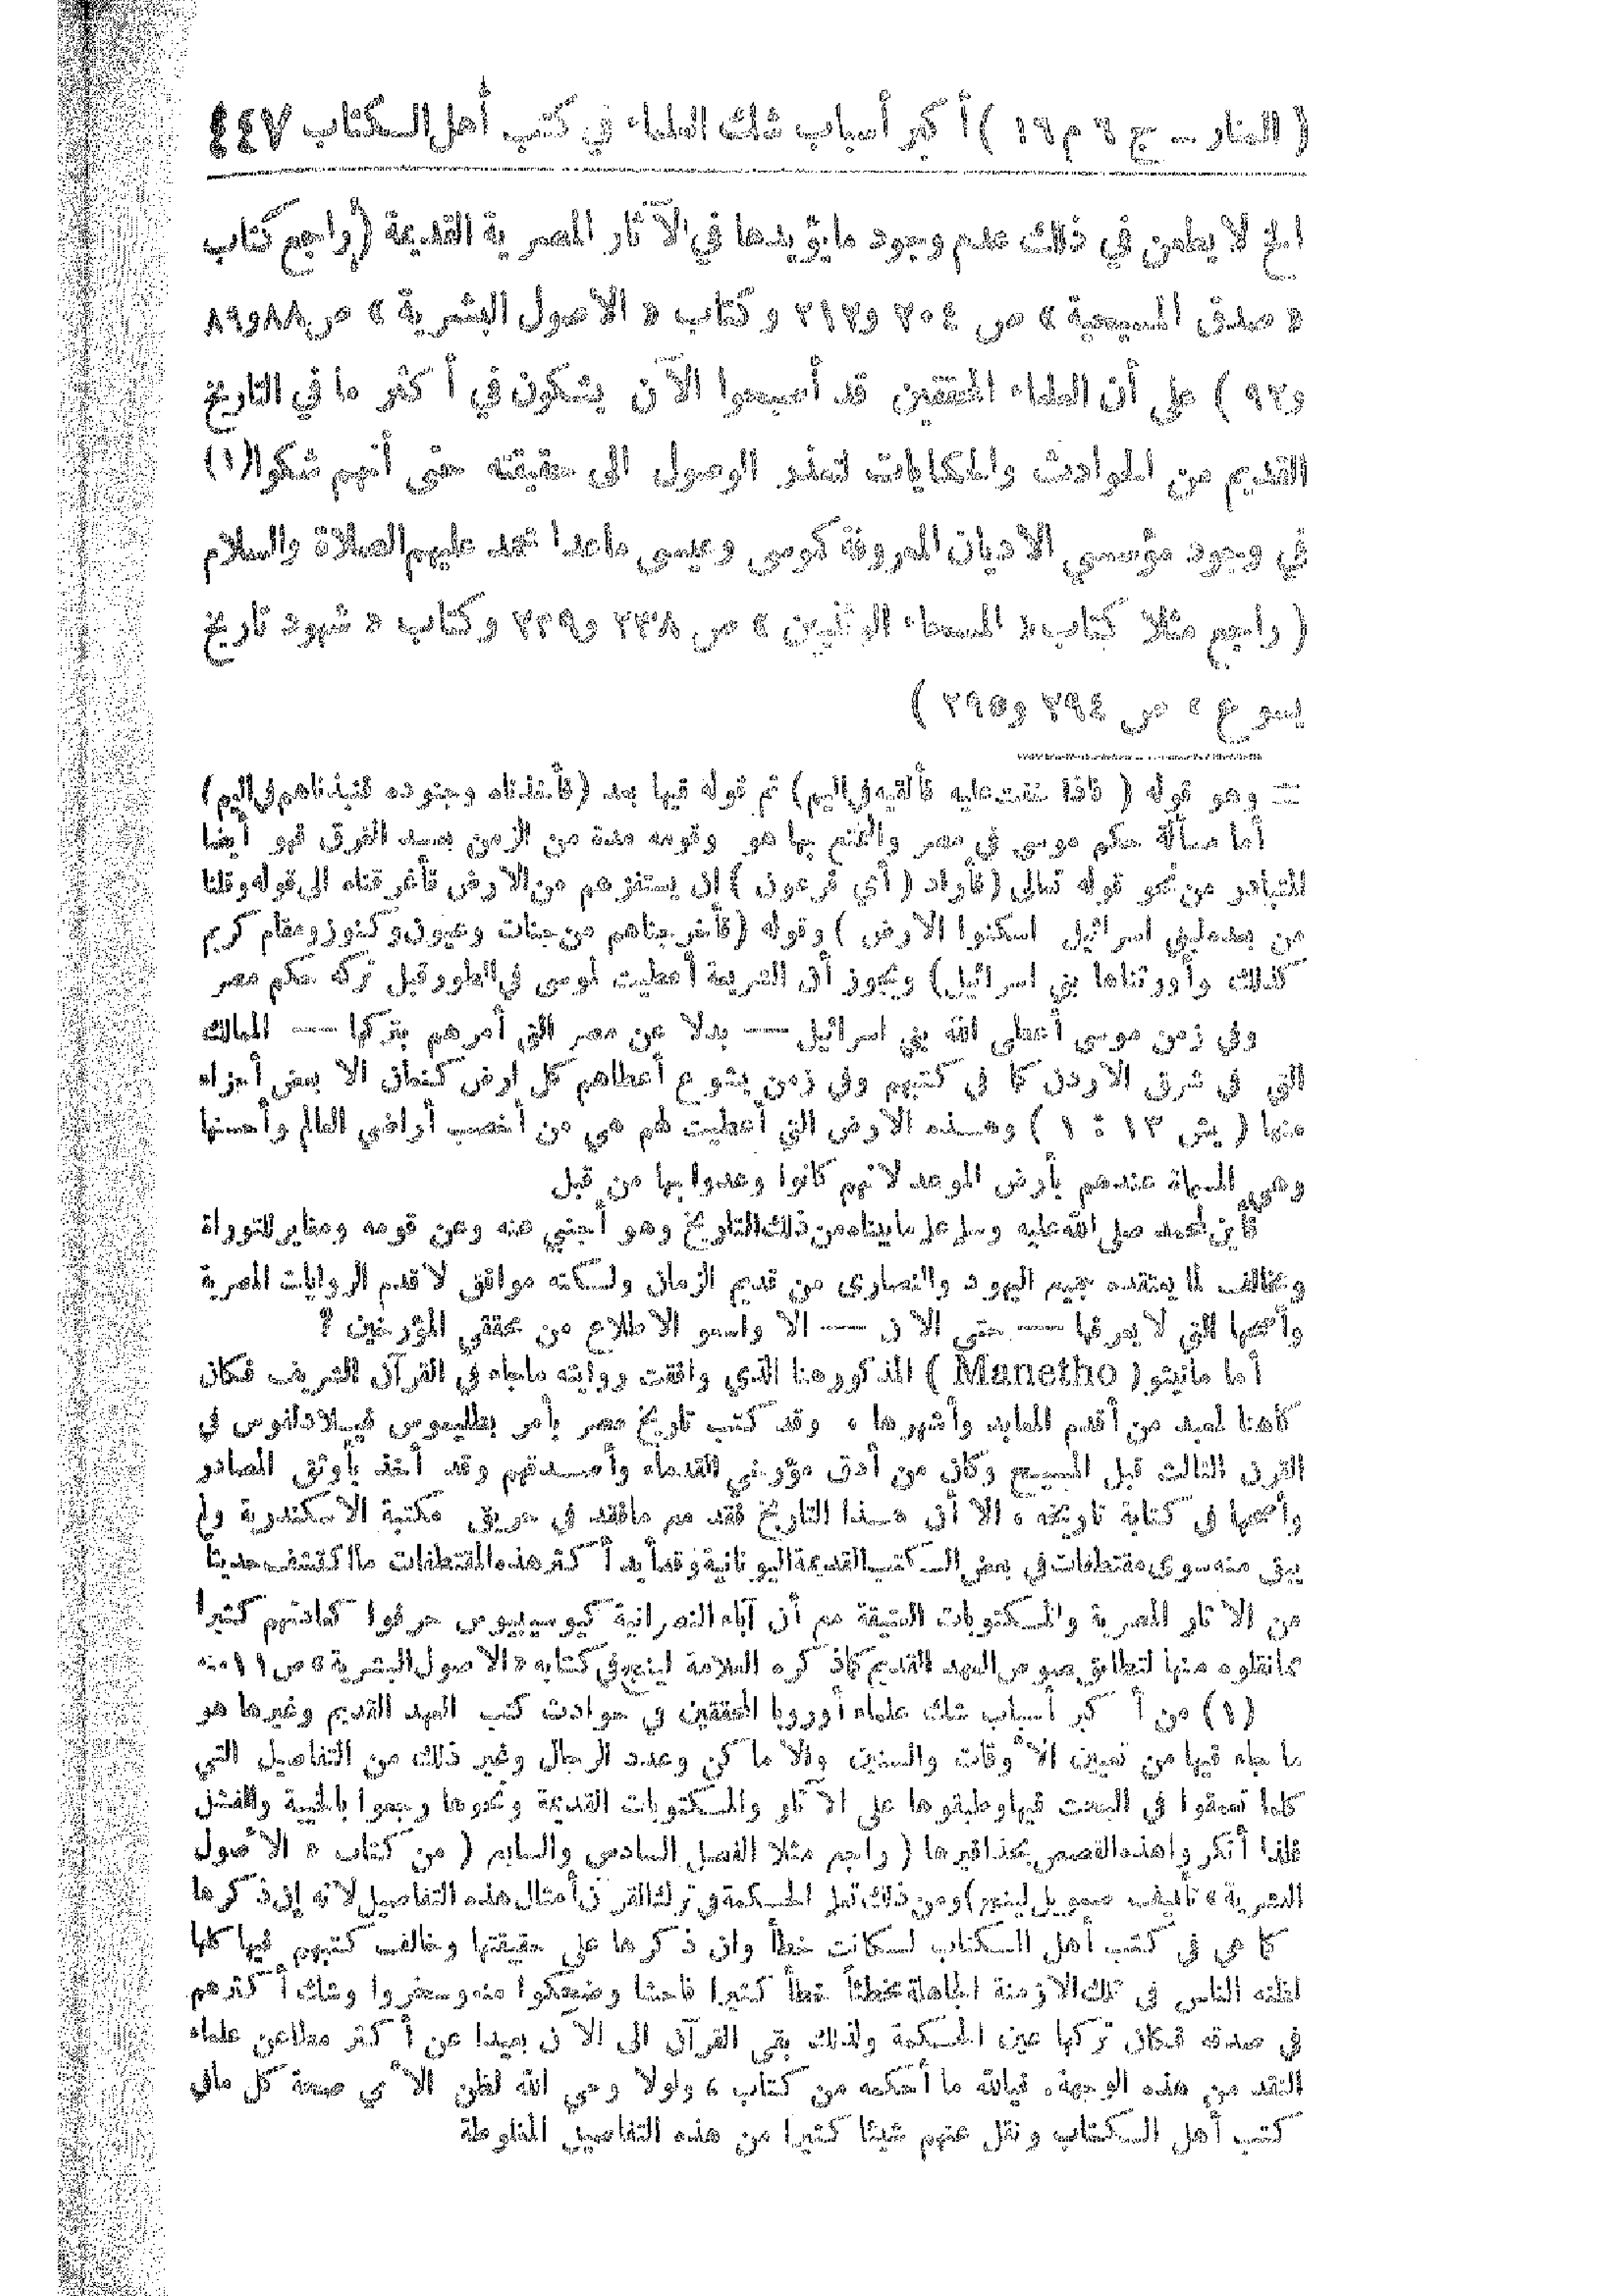 ( المنار ــ ج ٦ م ١٦ ) أكبر أسباب شك العلماء في كتب أهل الكتاب ٤٤٧
الخ لا يطعن في ذلك عدم وجود ما يؤيدها في الآثار المصرية القديمة ( راجع كتاب
« صدق المسيحية » ص ٢٠٤ و٢١٣ وكتاب « الاصول البشرية » ص ٨٨ و٨٩
و٩٢ ) على أن العلماء المحققين قد أصبحوا الآن يشكون في أكثر ما في التاريخ
القديم من الحوادث والحكايات لتعذر الوصول الى حقيقته حتى أنهم شكوا(١)
في وجود مؤسسي الاديان المعروفة كموسى وعيسى ماعدا محمد عليهم الصلاة والسلام
( راجع مثلا كتاب « المسحاء الوثنيين » ص ٢٣٨ و٢٣٩ وكتاب « شهود تاريخ
يسوع » ص ٢٩٤ و٢٩٥ )
= وهو قوله ( فاذا خفت عليه فألقيه في اليم ) ثم قوله فيها بعد ( فأخذناه وجنوده فنبذناهم في اليم )
أما مسألة حكم موسى في مصر والتمتع بها هو وقومه مدة من الزمن بعيد الغرق فهو أيضا
المتبادر من نحو قوله تعالى ( فأراد ( أي فرعون ) ان يستفزهم من الارض فأغرقناه الى قوله وقلنا
من بعده لبني اسرائيل اسكنوا الارض ) وقوله ( فأخرجناهم من جنات وعيون وكنوز ومقام كريم
كذلك وأورثناها بني اسرائيل ) ويجوز أن الشريعة أعطيت لموسى في الطور قبل تركه حكم مصر
وفي زمن موسى أعطى الله بني اسرائيل — بدلا عن مصر التي أمرهم بتركها — الممالك
التي في شرق الاردن كما في كتبهم وفي زمن يشوع أعطاهم كل ارض كنعان الا بعض أجزاء
منها ( يش ١٣ : ١ ) وهذه الارض التي أعطيت لهم هي من أخصب أراضي العالم وأحسنها
وهي المسماة عندهم بأرض الموعد لانهم كانوا وعدوا بها من قبل
فأين لمحمد صلى الله عليه وسلم علم ما بيناه من ذلك التاريخ وهو أجنبي عنه وعن قومه ومغاير للتوراة
ومخالف لما يعتقده جميع اليهود والنصارى من قديم الزمان ولكنه موافق لاقدم الروايات المصرية
وأصحها التي لا يعرفها — حتى الآن — الا واسعو الاطلاع من محققي المؤرخين ؟
أما مانيثو ( Manetho ) المذكور هنا الذي وافقت روايته ماجاء في القرآن الشريف فكان
كاهنا لمعبد من أقدم المعابد وأشهرها ، وقد كتب تاريخ مصر بأمر بطليموس فيلادلفوس في
القرن الثالث قبل المسيح وكان من أدق مؤرخي القدماء وأصدقهم وقد أخذ بأوثق المصادر
وأصحها في كتابة تاريخه ، الا أن هذا التاريخ فقد مع مافقد في حريق مكتبة الاسكندرية ولم
يبق منه سوى مقتطفات في بعض الكتب القديمة اليونانية وقد أيد أكثر هذه المقتطفات ما اكتشف حديثا
من الآثار المصرية والمكتوبات العتيقة مع أن آباء النصرانية كيوسيبيوس حرفوا كعادتهم كثيرا
مما نقلوه منها لتطابق نصوص العهد القديم كما ذكره العلامة لينج في كتابه « الاصول البشرية » ص ١١ منه
(١) من أكبر أسباب شك علماء أوروبا المحققين في حوادث كتب العهد القديم وغيرها هو
ما جاء فيها من تعيين الأوقات والسنين والأماكن وعدد الرجال وغير ذلك من التفاصيل التي
كلما تعمقوا في البحث فيها وطبقوها على الآثار والمكتوبات القديمة ونحوها رجعوا بالخيبة والفشل
فلذا أنكروا هذه القصص بحذافيرها ( راجع مثلا الفصل السادس والسابع ( من كتاب « الأصول
البشرية » تأليف صمويل لينج ) ومن ذلك تعلم الحكمة في ترك القرآن أمثال هذه التفاصيل لانه إن ذكرها
كما هي في كتب أهل الكتاب لكانت خطأ وان ذكرها على حقيقتها وخالف كتبهم فيها كلها
لظنه الناس في تلك الازمنة الجاهلة مخطئاً خطأ كثيرا فاحشا وضحكوا منه وسخروا وشك أكثرهم
في صدقه فكان تركها عين الحكمة ولذلك بقي القرآن الى الآن بعيدا عن أكثر مطاعن علماء
النقد من هذه الوجهة. فيالله ما أحكمه من كتاب ، ولولا وحي الله لظن الأمي صحة كل مافي
كتب أهل الكتاب ونقل عنهم شيئا كثيرا من هذه التفاصيل المغلوطة